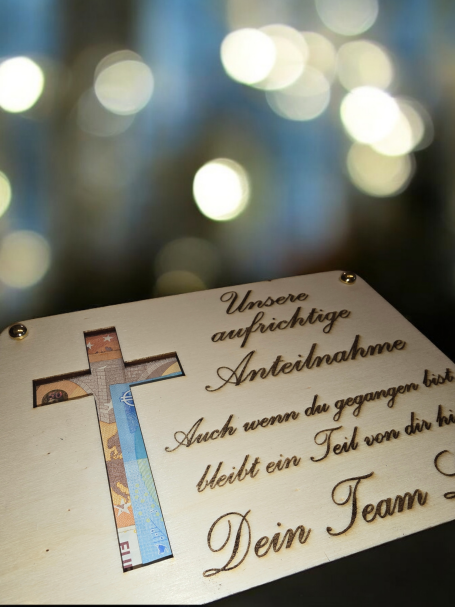 Unsere
aufrichtige
Anteilnahme
Auch wenn du gegangen bist
bleibt ein Teil von dir hi
Dein Team